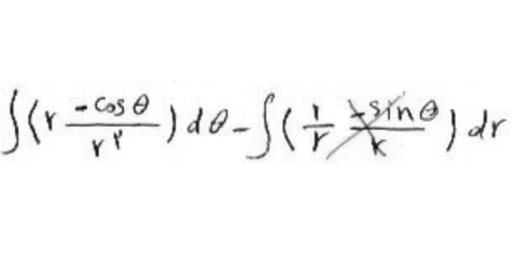 ∫(r (-cos θ)/(r^۲)) dθ - ∫(1/r (-sin θ)/r) dr